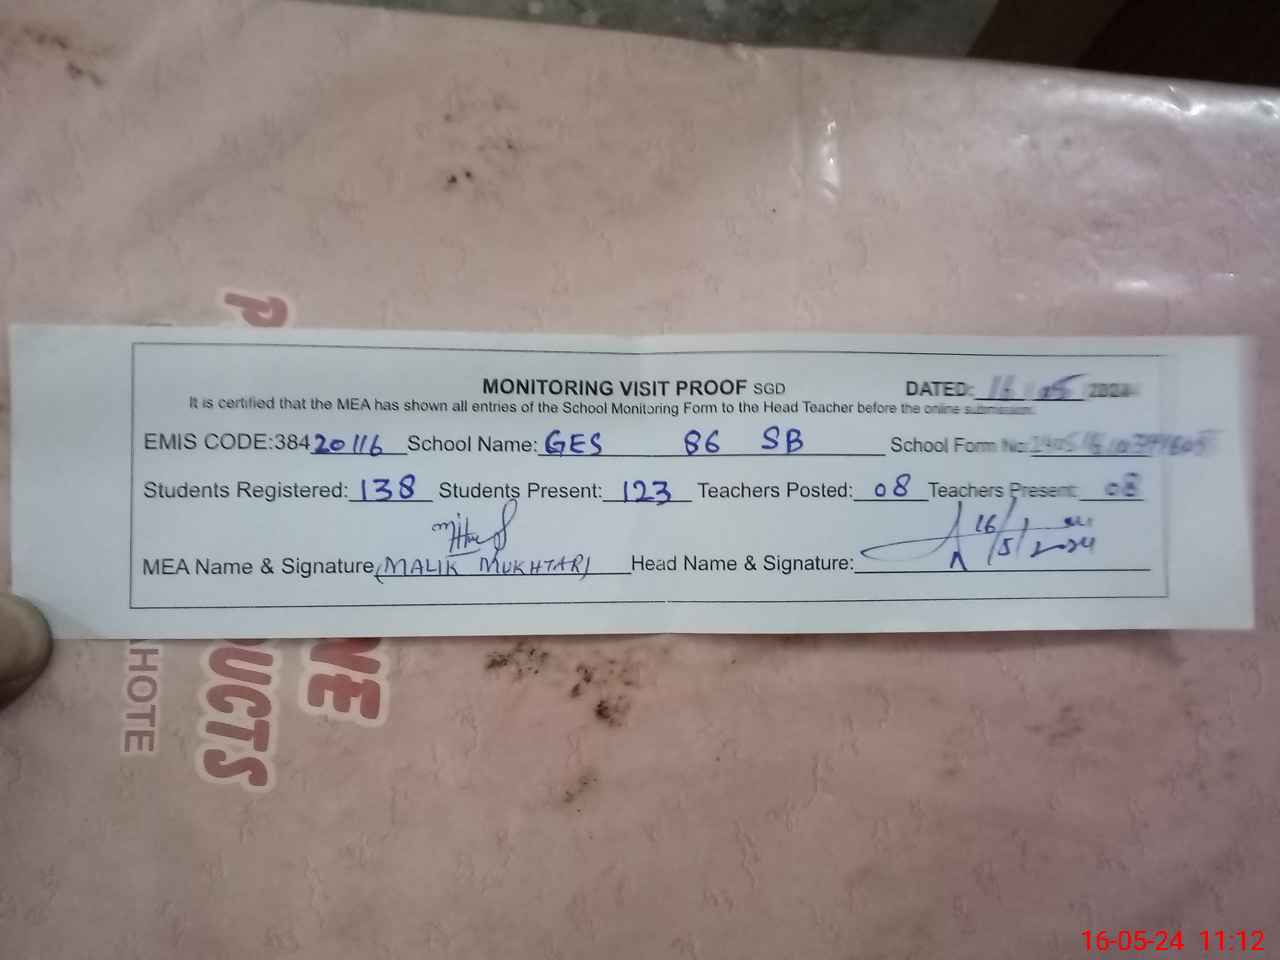 MONITORING VISIT PROOF SGD DATED: 16/05/2024
It is certified that the MEA has shown all entries of the School Monitoring Form to the Head Teacher before the online submission.
EMIS CODE:38420116 School Name: GES 86 SB School Form No:
Students Registered: 138 Students Present: 123 Teachers Posted: 08 Teachers Present: 08
16/5/2024
MEA Name & Signature (MALIK MUKHTAR) Head Name & Signature:
HOTE
UCTS
NE
16-05-24 11:12